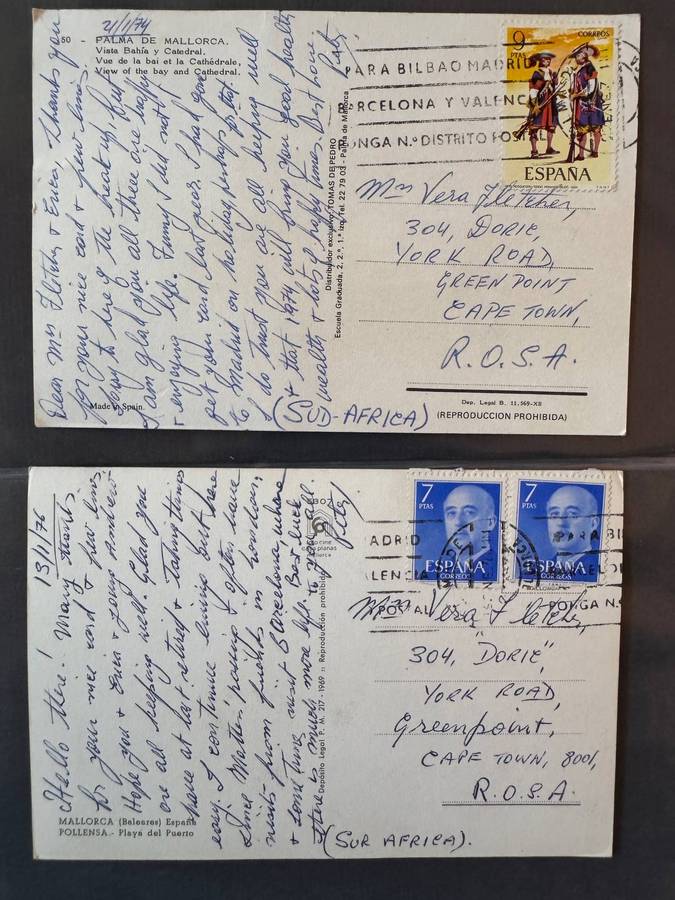 2/1/74
50 - PALMA DE MALLORCA.
Vista Bahía y Catedral.
Vue de la bai et la Cathédrale.
View of the bay and Cathedral.
Dear Mrs Fletcher + Erica. Thanks you
for your nice card + few lines.
Sorry to hear of the break up, but
I am glad you all three are happy
+ enjoying life. Funny I did not
get your card last year. I had gone
to Madrid on holiday, perhaps
I do trust you are all keeping well
+ that 1974 will bring you good health
wealth + lots of happy times. Best love
Made in Spain.
Distribuidor exclusivo: TOMAS DE PEDRO
Escuela Graduada, 2, 2.º, 1.ª izq. Tel. 22 79 03 - Palma de Mallorca
PARA BILBAO MADRID
BARCELONA Y VALENCIA
PONGA N.º DISTRITO POSTAL
9
PTAS
CORREOS
ESPAÑA
Mrs Vera Fletcher,
304, DORIE,
YORK ROAD,
GREEN POINT
CAPE TOWN,
R.O.S.A.
(SUD-AFRICA)
Dep. Legal B. 11.569-XII
(REPRODUCCION PROHIBIDA)
13/1/76
Hello there! Many thanks
for your nice card + few lines
Hope you + Erica + young Andrew
are all keeping well. Glad you
have at last retired + taking things
easy. I continue living but here
since Mother's passing + often have
visits from friends in London,
+ sometime visit Barcelona where
there is much more life. Best luck
to you all
MALLORCA (Baleares) España
POLLENSA.- Playa del Puerto
Depósito Legal P. M. 217 - 1969 :: Reproducción prohibida
7
PTAS
ESPAÑA
CORREOS
7
PTAS
ESPAÑA
CORREOS
MADRID
VALENCIA
POSTAL
PARA BIL
PONGA N.º
Mrs Vera Fletcher,
304, "DORIE",
YORK ROAD,
Greenpoint,
CAPE TOWN, 8001,
R.O.S.A.
(SUR AFRICA).